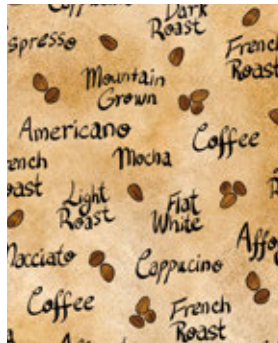 Dark
Roast
spresso
French
Roast
Mountain
Grown
Americano
Coffee
Mocha
rench
oast
Light
Roast
Flat
White
Affo
acciato
Cappucino
Coffee
French
Roast